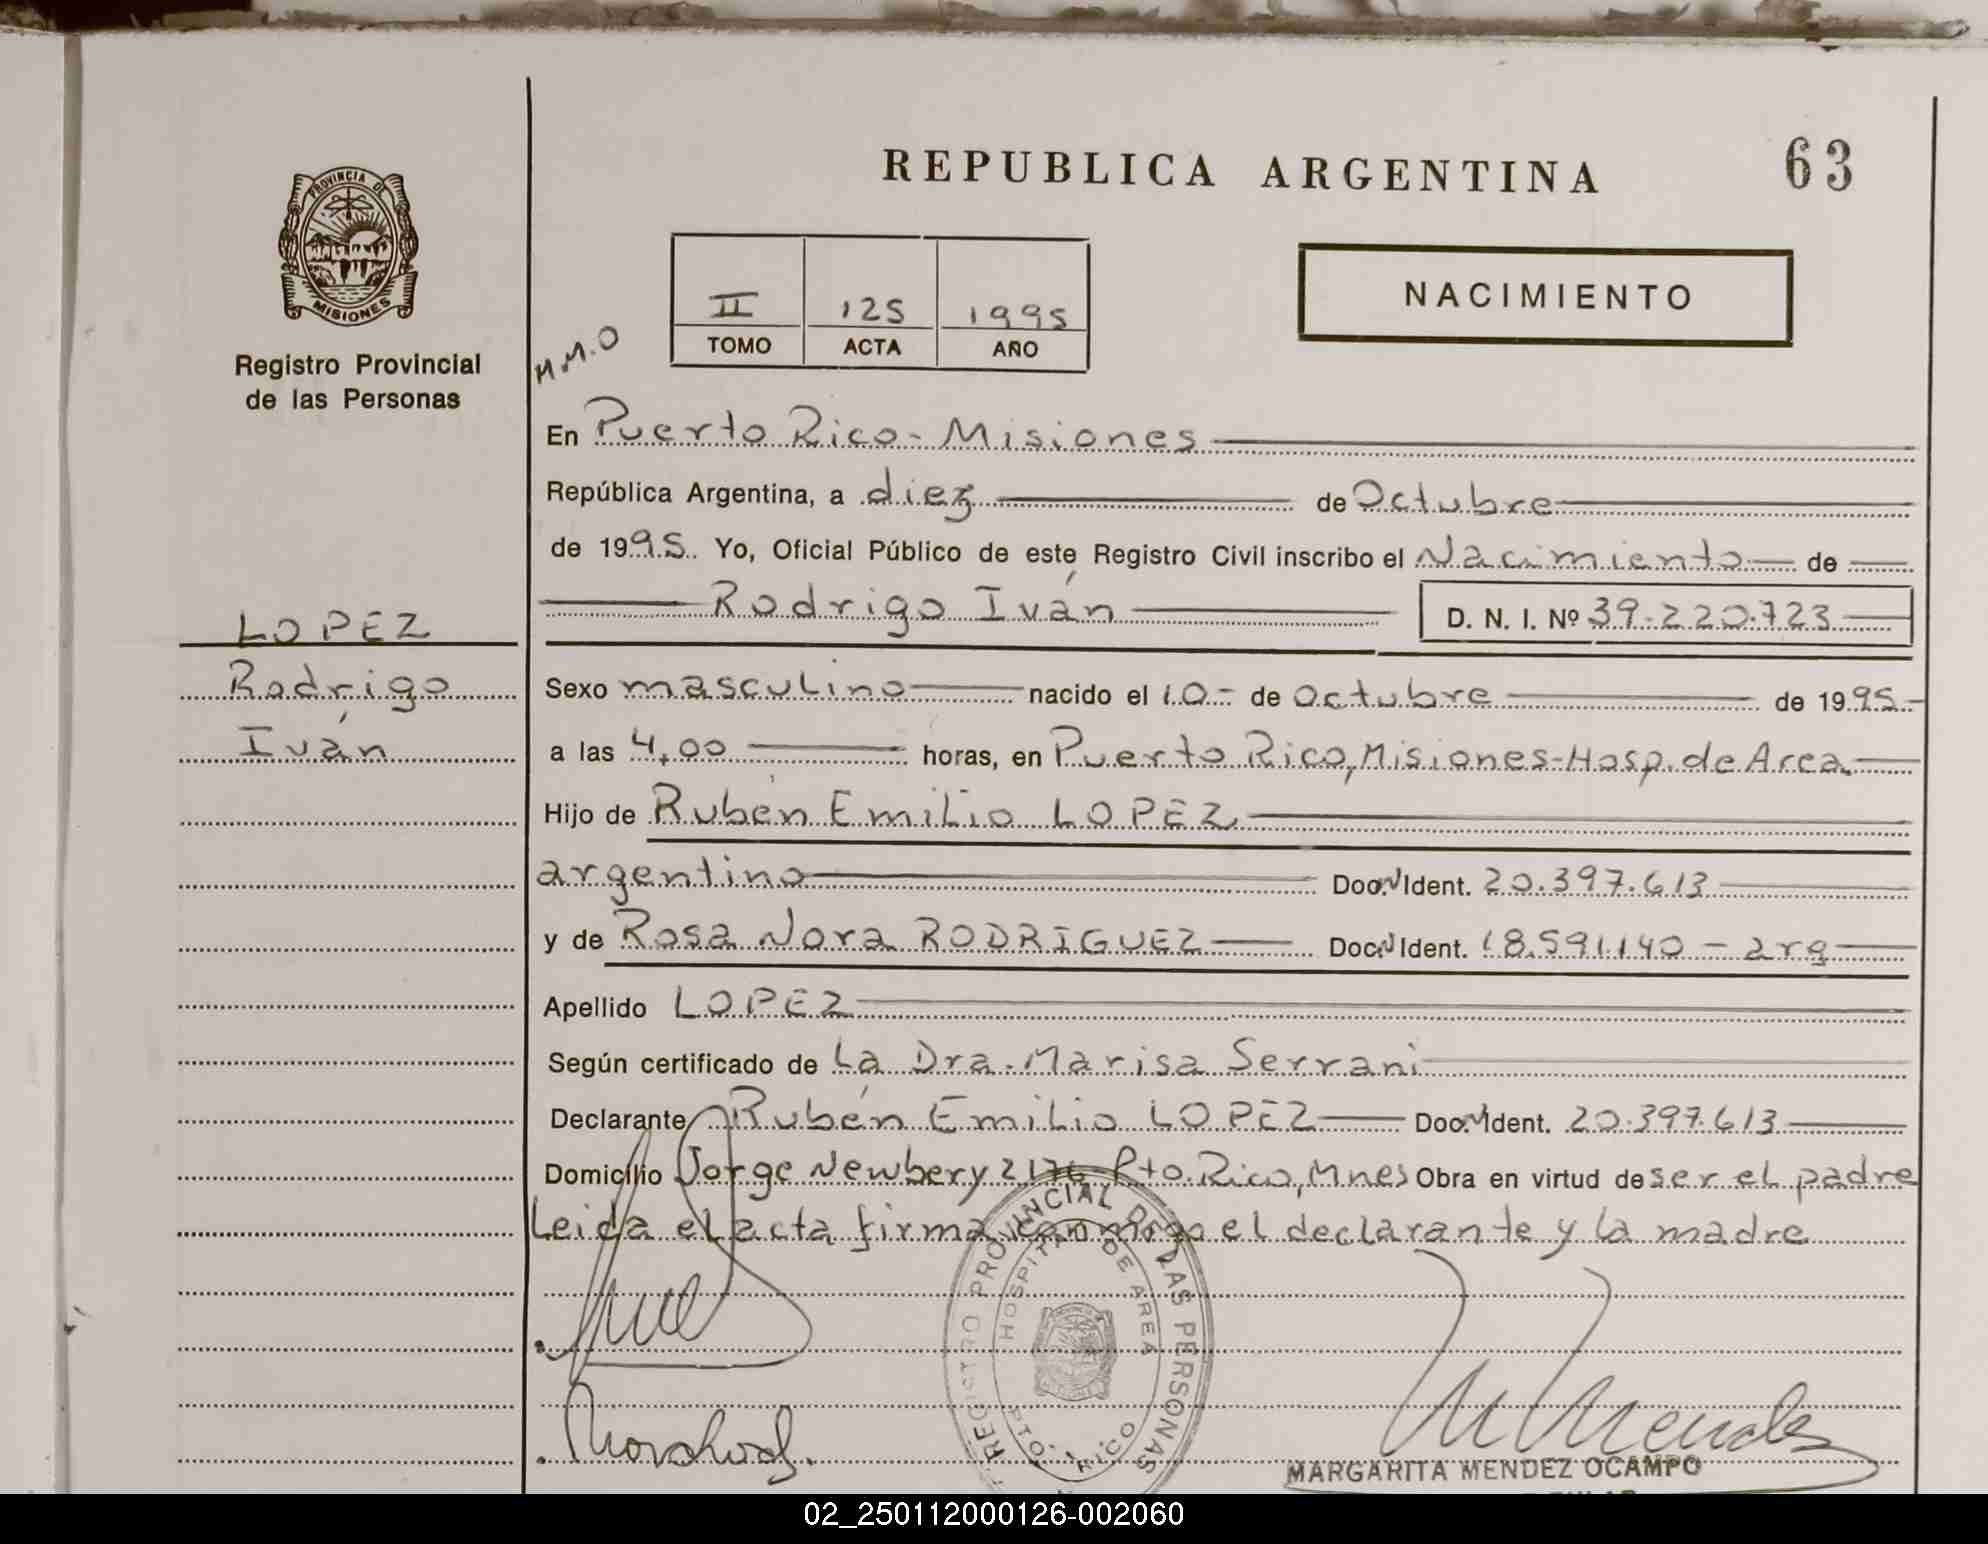 REPUBLICA ARGENTINA
63
PROVINCIA DE
MISIONES
Registro Provincial
de las Personas
II
125
1995
TOMO
ACTA
AÑO
NACIMIENTO
M.M.O
En Puerto Rico - Misiones
República Argentina, a diez de Octubre
de 1995. Yo, Oficial Público de este Registro Civil inscribo el Nacimiento de
Rodrigo Iván
D. N. I. Nº 39.220.723
LOPEZ
Rodrigo
Iván
Sexo masculino nacido el 10 - de Octubre de 1995 -
a las 4,00 horas, en Puerto Rico, Misiones - Hosp. de Area
Hijo de Rubén Emilio LOPEZ
argentino Doc. Ident. 20.397.613
y de Rosa Nora RODRIGUEZ Doc. Ident. 18.591.140 - arg
Apellido LOPEZ
Según certificado de La Dra. Marisa Serrani
Declarante Rubén Emilio LOPEZ Doc. Ident. 20.397.613
Domicilio Jorge Newbery 2176 Pto. Rico, Mnes Obra en virtud de ser el padre
Leida el acta firma conmigo el declarante y la madre
REGISTRO PROVINCIAL DE LAS PERSONAS
HOSPITAL DE AREA
PTO. RICO
MARGARITA MENDEZ OCAMPO
02_250112000126-002060